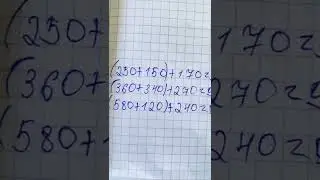 (250+150)+170=
(360+340)+270=
(580+120)+240=